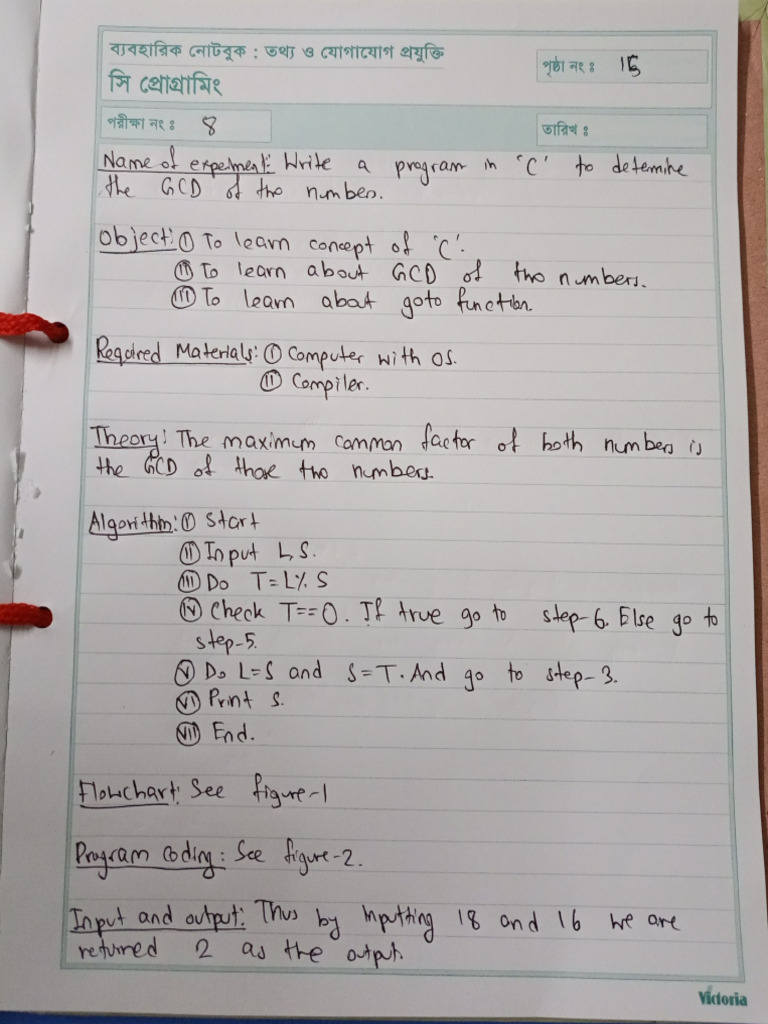 ব্যবহারিক নোটবুক : তথ্য ও যোগাযোগ প্রযুক্তি
সি প্রোগ্রামিং
পৃষ্ঠা নং ঃ 15
পরীক্ষা নং ঃ 8
তারিখ ঃ
Name of experiment: Write a program in 'C' to determine
the GCD of two numbers.
Object: (i) To learn concept of 'C'.
(ii) To learn about GCD of two numbers.
(iii) To learn about goto function.
Required Materials: (i) Computer with OS.
(ii) Compiler.
Theory: The maximum common factor of both numbers is
the GCD of those two numbers.
Algorithm: (i) Start
(ii) Input L, S.
(iii) Do T=L% S
(iv) Check T==0. If true go to step-6. Else go to
step-5.
(v) Do L=S and S=T. And go to step-3.
(vi) Print S.
(vii) End.
Flowchart: See figure-1
Program coding: See figure-2.
Input and output: Thus by inputting 18 and 16 we are
returned 2 as the output.
Victoria